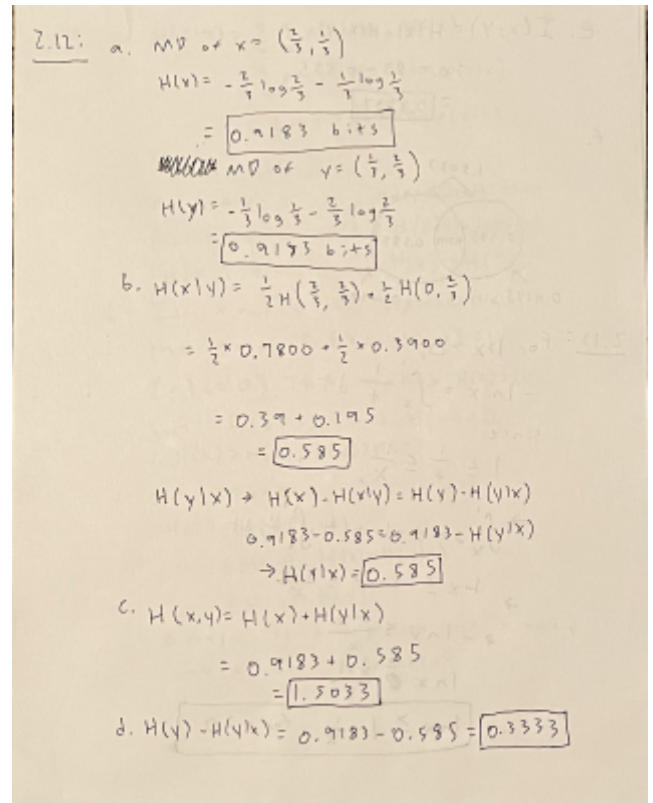 2.12: a. MD of x = (2/3, 1/3)
H(x) = -2/3 log 2/3 - 1/3 log 1/3
= 0.9183 bits
MD of y = (1/3, 2/3)
H(y) = -1/3 log 1/3 - 2/3 log 2/3
= 0.9183 bits
b. H(x|y) = 1/2 H(2/3, 2/3) + 1/2 H(0, 2/3)
= 1/2 × 0.7800 + 1/2 × 0.3900
= 0.39 + 0.195
= 0.585
H(y|x) → H(x) - H(x|y) = H(y) - H(y|x)
0.9183 - 0.585 = 0.9183 - H(y|x)
→ H(y|x) = 0.585
c. H(x,y) = H(x) + H(y|x)
= 0.9183 + 0.585
= 1.5033
d. H(y) - H(y|x) = 0.9183 - 0.585 = 0.3333